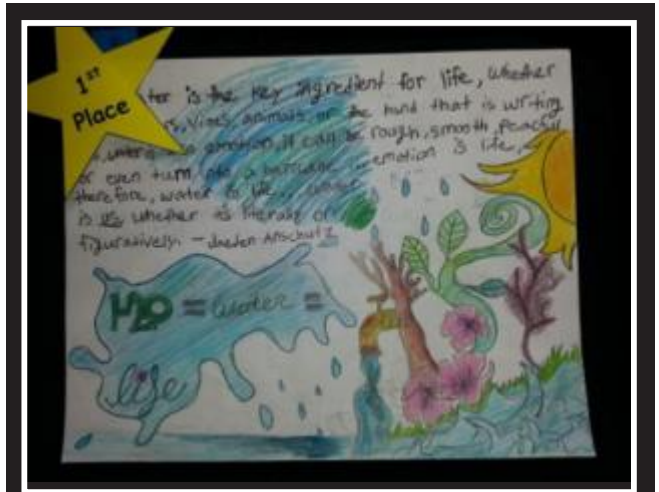 1st
Place
ter is the key ingredient for life, whether
vines, animals, or the hand that is writing
water is emotion, it can be rough, smooth, peaceful
or even turn into a hurricane ... emotion is life,
therefore, water is life...
is us whether its literaly or
figuratively. - Jaeden Anschutz
H2O = water =
life